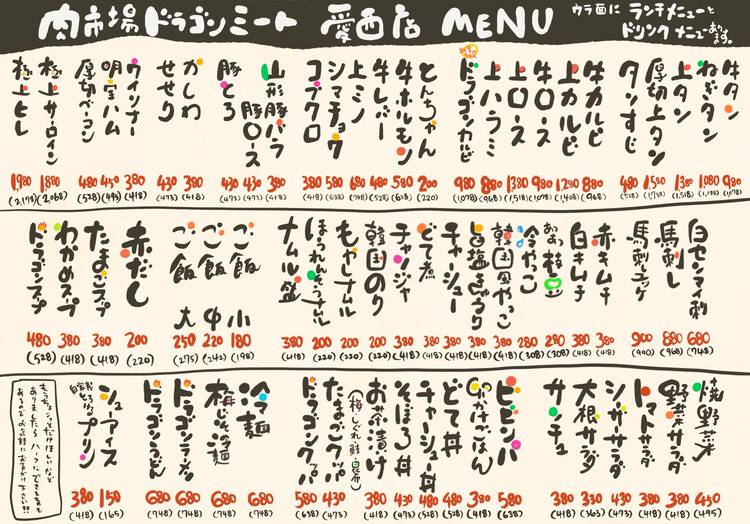 肉市場ドラゴンミート 愛西店 MENU
ウラ面に ランチメニューと
ドリンクメニューあります。
牛タン 980 (1,078)
ねぎタン 1080 (1,188)
上タン 1380 (1,518)
厚切上タン 1580 (1,738)
タンすじ 480 (528)
牛カルビ 880 (968)
上カルビ 1280 (1,408)
牛ロース 980 (1,078)
上ロース 1380 (1,518)
上ハラミ 880 (968)
ドラゴンカルビ 980 (1,078)
とんちゃん 200 (220)
牛ホルモン 580 (638)
牛レバー 480 (528)
上ミノ 680 (748)
シマチョウ 580 (638)
コブクロ 380 (418)
山形豚バラ 380 (418)
豚ロース 430 (473)
豚とろ 430 (473)
かしわ 380 (418)
せせり 430 (473)
ウインナー 380 (418)
明宝ハム 450 (495)
厚切ベーコン 480 (528)
極上サーロイン 1880 (2,068)
極上ヒレ 1980 (2,178)
白センマイ刺 680 (748)
馬刺し 880 (968)
馬刺ユッケ 900 (990)
赤キムチ 380 (418)
白キムチ 380 (418)
枝豆 280 (308)
冷やっこ 280 (308)
韓国風やっこ 380 (418)
旨塩きゅうり 380 (418)
チャーシュー 380 (418)
どて煮 380 (418)
チャンジャ 380 (418)
韓国のり 200 (220)
もやしナムル 200 (220)
ほうれんそうナムル 200 (220)
ナムル盛 380 (418)
ご飯 小 180 (198)
ご飯 中 220 (242)
ご飯 大 250 (275)
赤だし 200 (220)
たまごスープ 380 (418)
わかめスープ 380 (418)
ドラゴンスープ 480 (528)
焼野菜 450 (495)
野菜サラダ 380 (418)
トマトサラダ 380 (418)
シーザーサラダ 430 (473)
大根サラダ 330 (363)
サンチュ 380 (418)
ビビンバ 580 (638)
ぶっかけごはん 380 (418)
どて丼 480 (528)
チャーシュー丼 480 (528)
そぼろ丼 430 (473)
お茶漬け (梅・しぐれ・鮭・昆布) 380 (418)
たまごクッパ 430 (473)
ドラゴンクッパ 580 (638)
冷麺 680 (748)
梅じそ冷麺 680 (748)
ドラゴンラーメン 680 (748)
ドラゴンうどん 680 (748)
シューアイス 150 (165)
自家製とろけるプリン 380 (418)